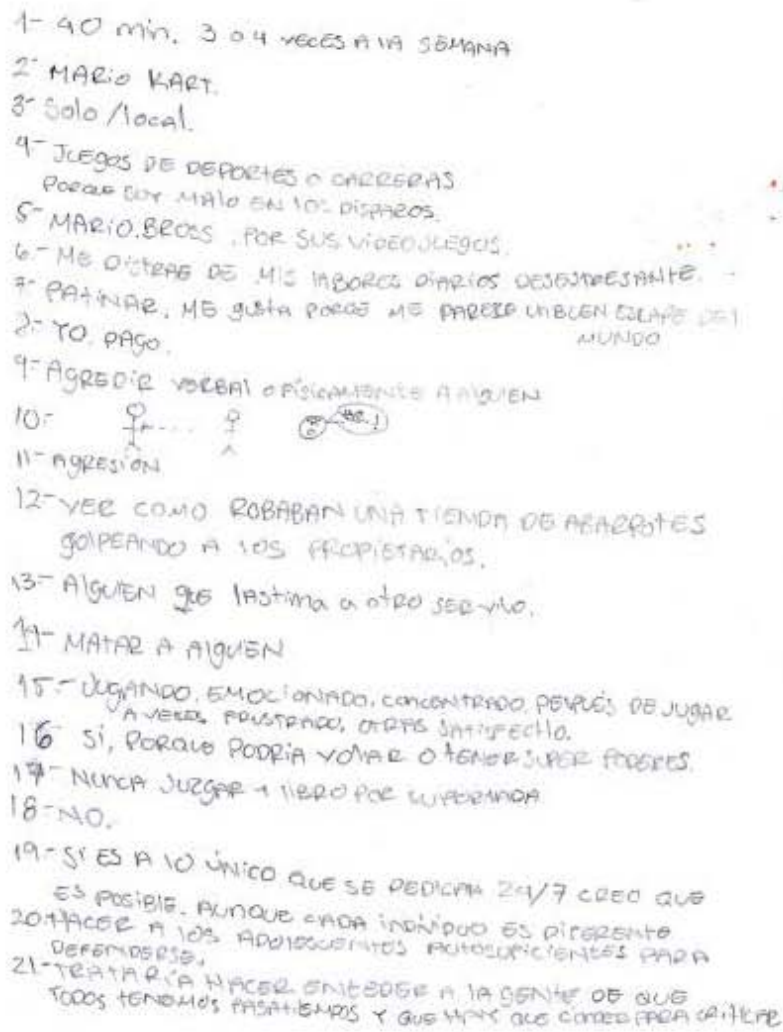 1- 40 min. 3 o 4 veces a la semana
2- Mario Kart.
3- Solo/local.
4- Juegos de deportes o carreras
porque soy malo en los disparos.
5- Mario.Bross, por sus videojuegos.
6.- Me distrae de mis labores diarios desestresante.
7- Patinar, me gusta porqe me parese un buen escape del
mundo
8- Yo, pago.
9- Agredir verbal o físicamente a alguien
10-
11- Agresión
12- Ver como robaban una tienda de abarrotes
golpeando a los propietarios.
13- Alguien que lastima a otro ser vivo.
14- Matar a alguien
15.- Jugando, emocionado, concentrado, después de jugar
a veces frustrado, otras satisfecho.
16 Sí, porque podría volar o tener super poderes.
17- Nunca juzgar 1 libro por su portada
18- No.
19.- Si es a lo único que se dedican 24/7 creo que
es posible. Aunque cada individuo es diferente
20.- Hacer a los adolescentes autosuficientes para
defenderse.
21- Trataría hacer enteder a la gente de que
todos tenemos pasatiempos y que hay que conocer para criticar